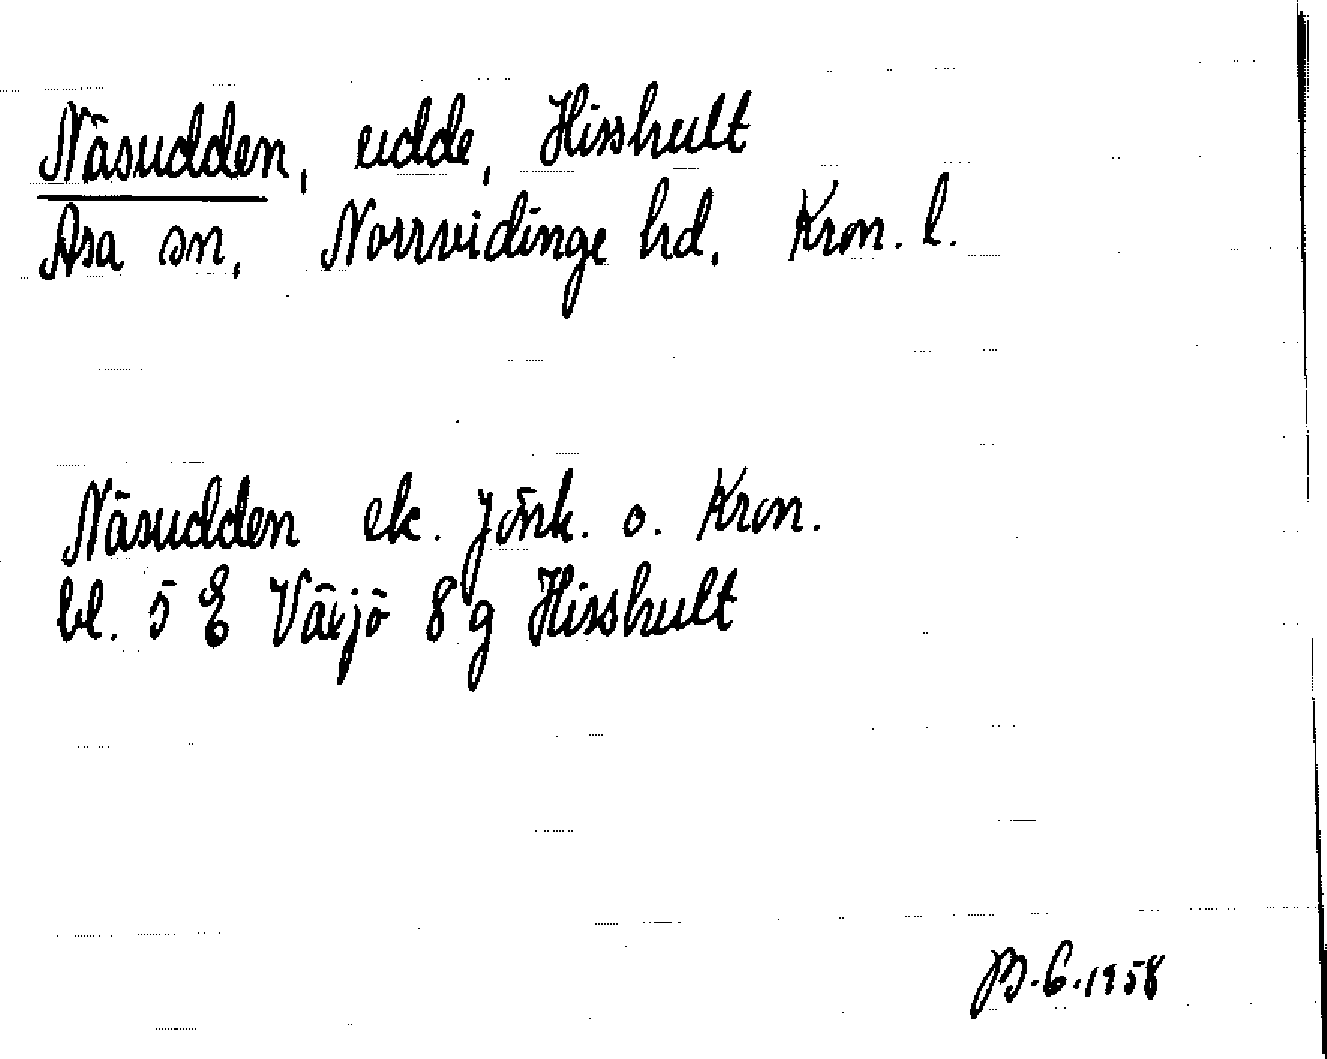 Näsudden, udde, Hisshult
Asa sn, Norrvidinge hd, Kron. l.
Näsudden ek. Jönk. o. Kron.
bl. 5 E Växjö 8 g Hisshult
B.G.1958